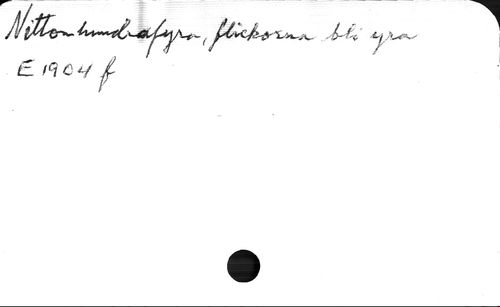 Nittonhundrafyra, flickorna bli yra
E 1904 f